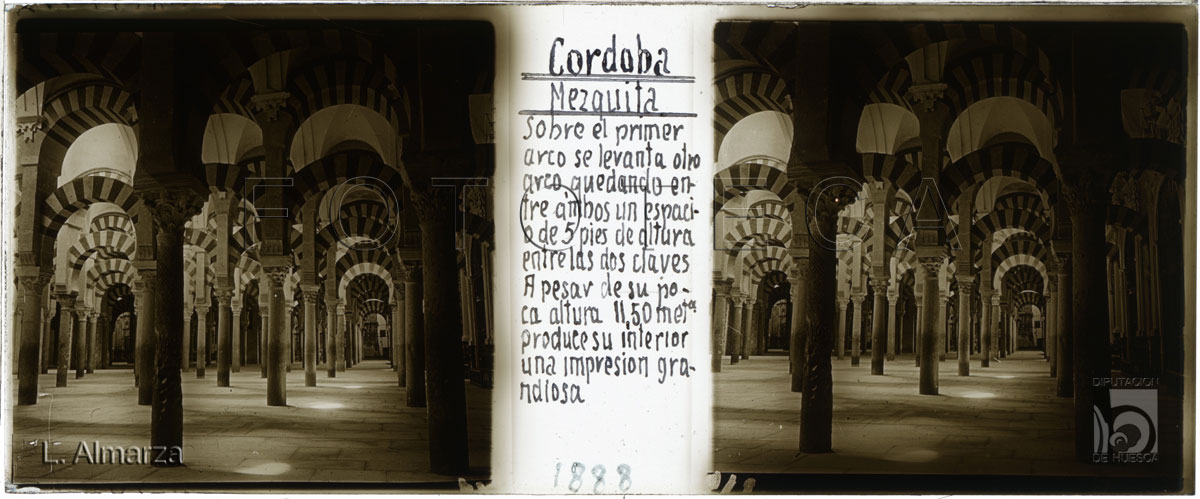 Cordoba
Mezquita
Sobre el primer
arco se levanta otro
arco quedando en-
tre ambos un espaci-
o de 5 pies de altura
entre las dos claves
A pesar de su po-
ca altura 11,50 met.ˢ
produce su interior
una impresion gra-
ndiosa
1888
L. Almarza
FOTOTECA
DIPUTACION
DE HUESCA